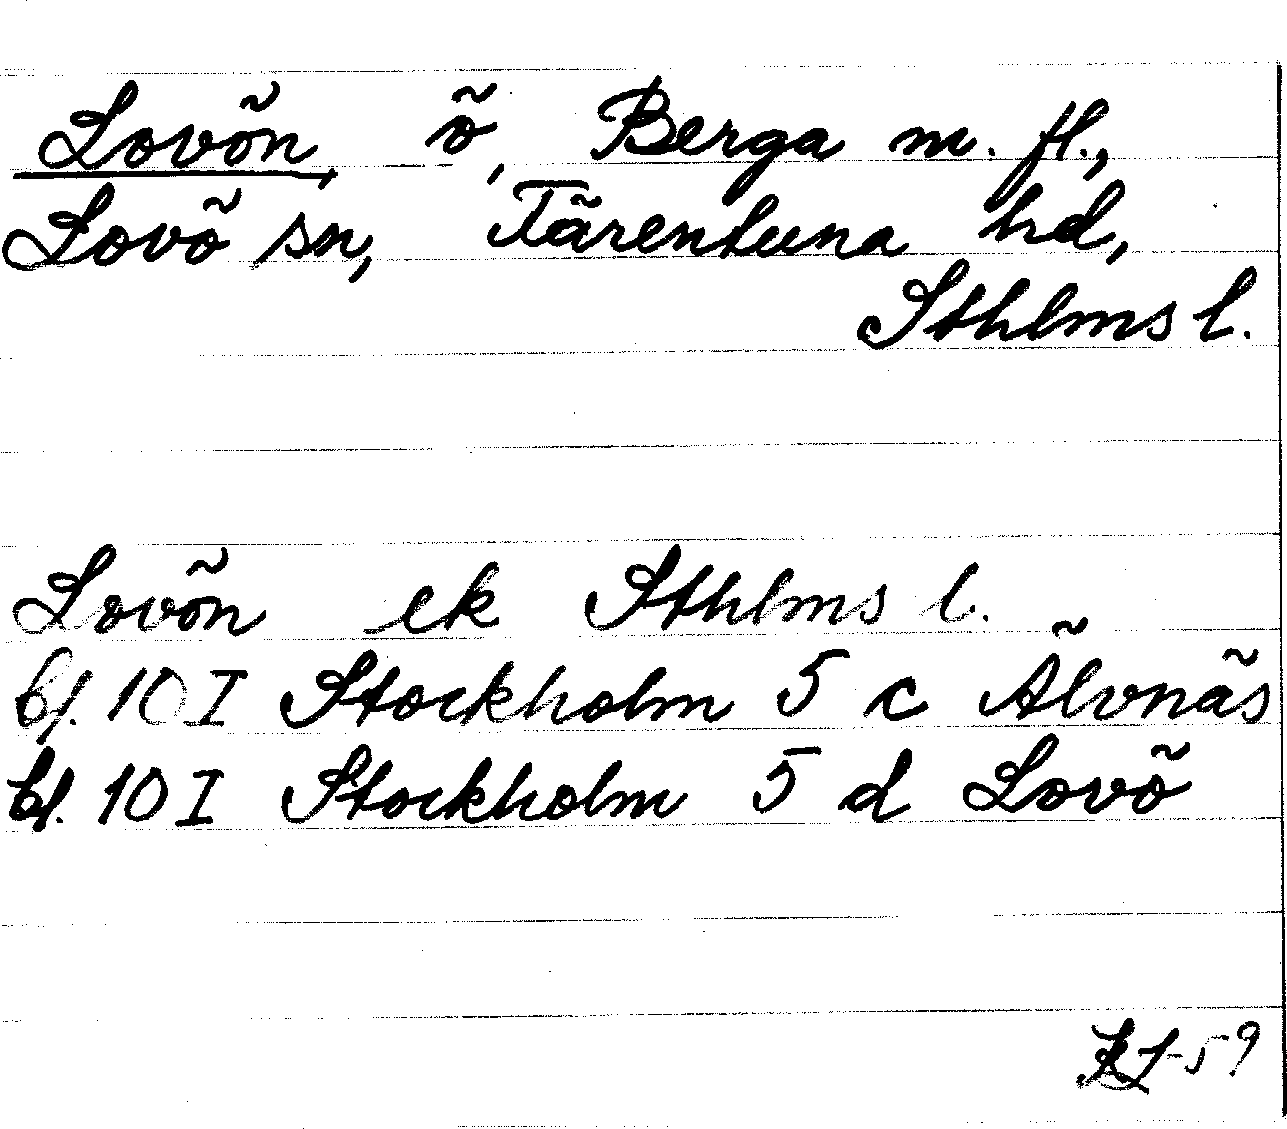 Lovön, ö, Berga m. fl.,
Lovö sn, Färentuna hd,
Sthlms l.
Lovön ek Sthlms l.
bl. 10 I Stockholm 5 c Älvnäs
bl. 10 I Stockholm 5 d Lovö
-59